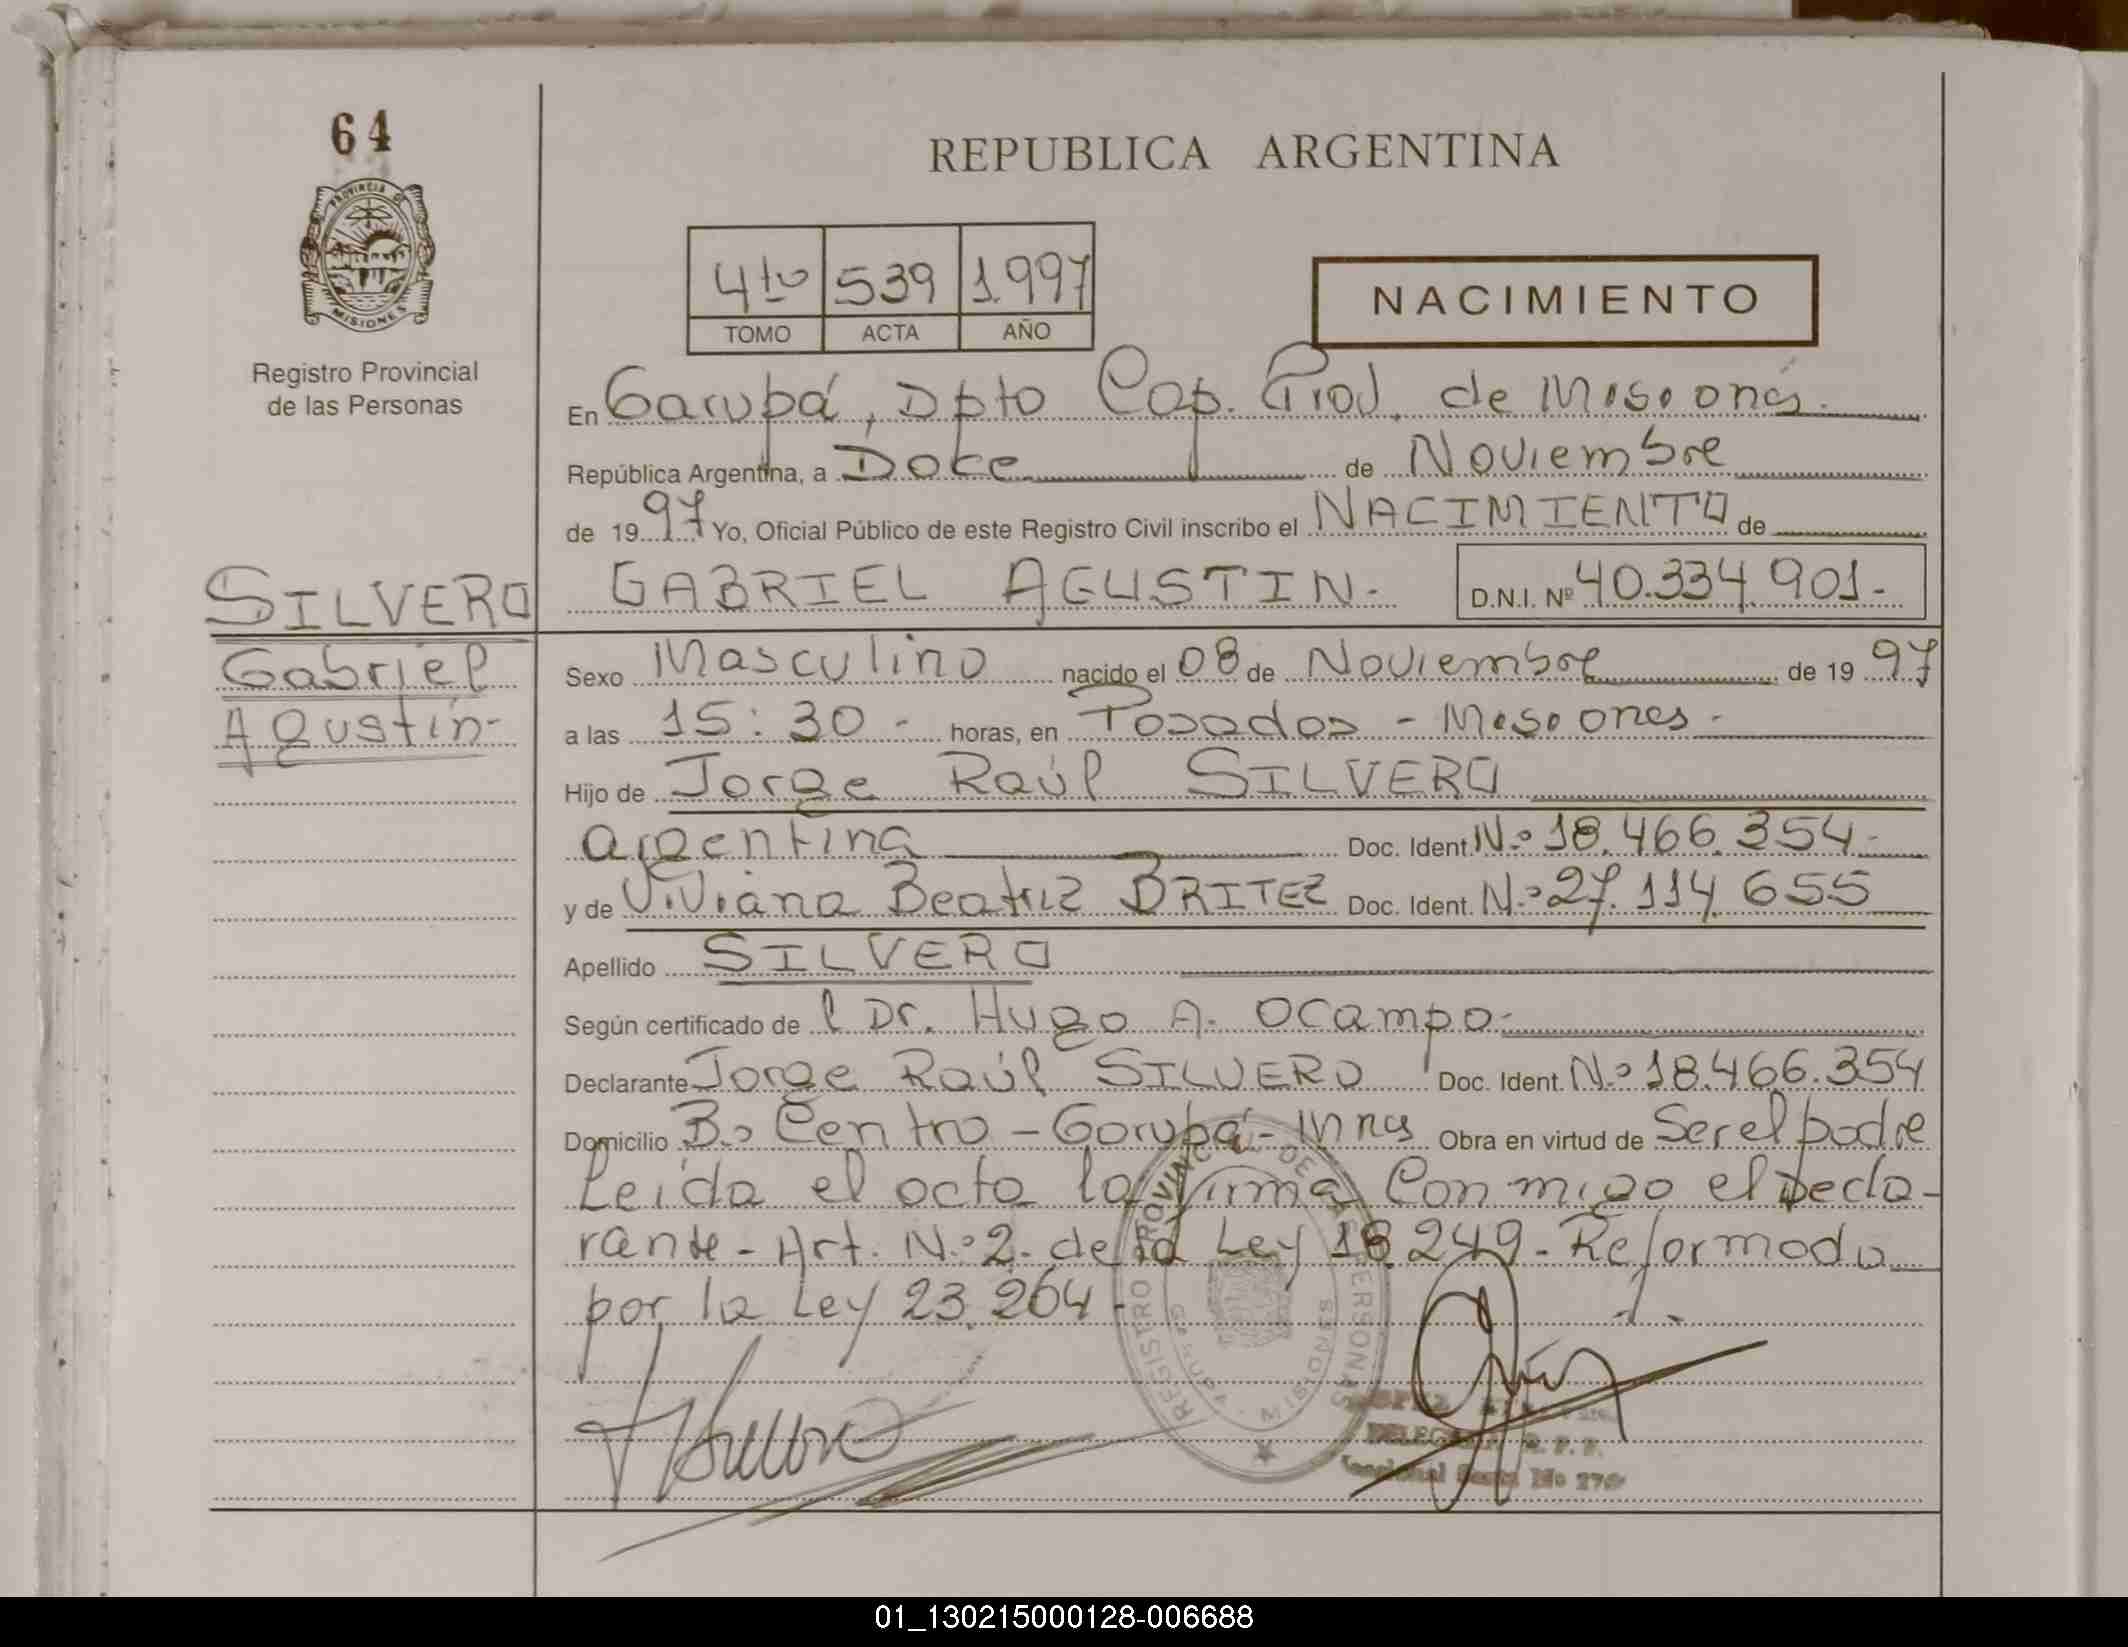 64
PROVINCIA DE
MISIONES
Registro Provincial
de las Personas
REPUBLICA ARGENTINA
4to 539 1.997
TOMO ACTA AÑO
NACIMIENTO
En Garupá, Dpto Cap. Prov. de Misiones.
República Argentina, a Doce de Noviembre
de 1997 Yo, Oficial Público de este Registro Civil inscribo el NACIMIENTO de
SILVERO GABRIEL AGUSTIN.- D.N.I. Nº 40.334.901.-
Gabriel
Agustín-
Sexo Masculino nacido el 08 de Noviembre de 1997
a las 15:30- horas, en Posadas - Misiones-
Hijo de Jorge Raúl SILVERO
argentina Doc. Ident. N.º 18.466.354-
y de Viviana Beatriz BRITEZ Doc. Ident. N.º 27.114.655
Apellido SILVERO
Según certificado de l Dr. Hugo A. Ocampo-
Declarante Jorge Raúl SILVERO Doc. Ident. N.º 18.466.354
Domicilio B.º Centro - Garupá - Mnes Obra en virtud de Ser el padre
Leída el acta la firma Conmigo el Decla-
rante - Art. N.º 2. de la Ley 18.249 - Reformada
por la Ley 23.264-
REGISTRO PROVINCIAL DE LAS PERSONAS
MISIONES
DELEGADA R.P.P.
01_130215000128-006688